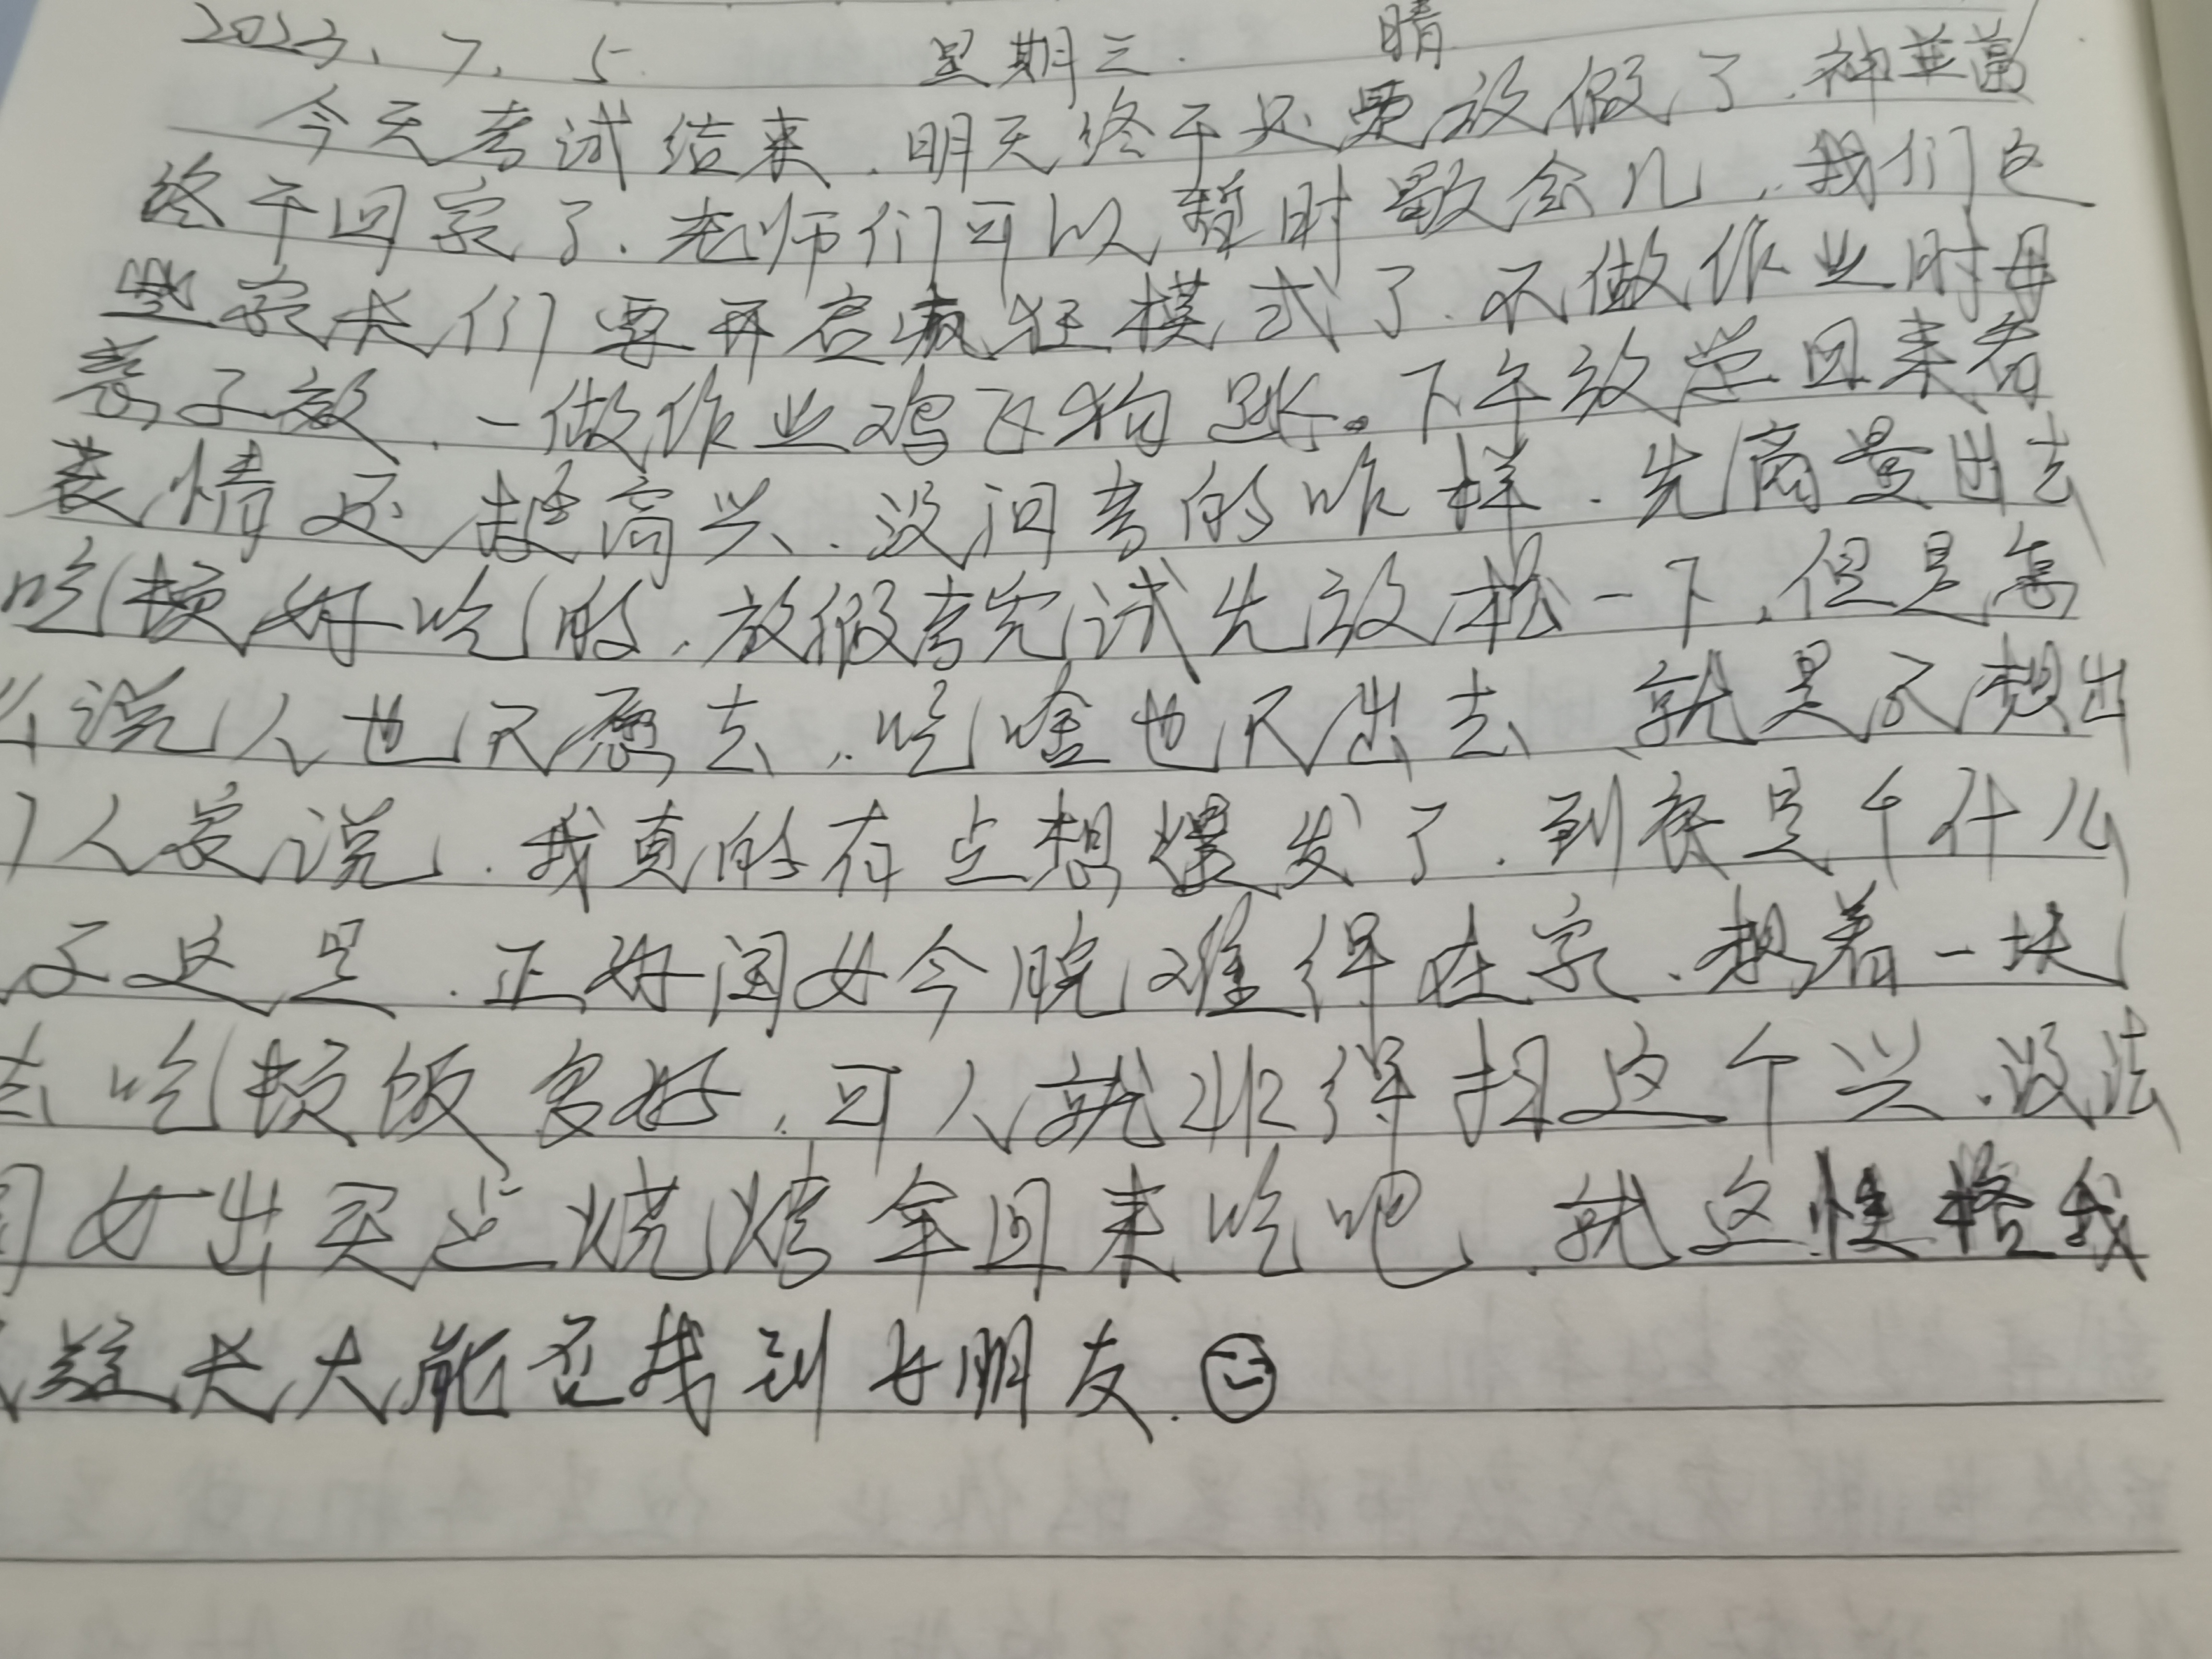 2023、7、5 星期三. 晴
今天考试结束.明天终于还要放假了.神兽
终于回家了.老师们可以暂时歇会儿,我们这
些家长们要开启疯狂模式了.不做作业时母
慈子孝,一做作业鸡飞狗跳。下午放学回来看
表情还挺高兴.没问考的咋样.先商量出去
吃顿好吃的.放假考完试先放松一下,但是怎
么说人也不愿去,吃啥也不出去 就是不想出
门人家说.我真的有点想爆发了.到底是个什么
子这是.正好闺女今晚难得在家.想着一块
去吃顿饭多好,可人就非得扫这个兴.没法
闺女出买点烧烤拿回来吃吧.就这性格我
疑长大能否找到女朋友.